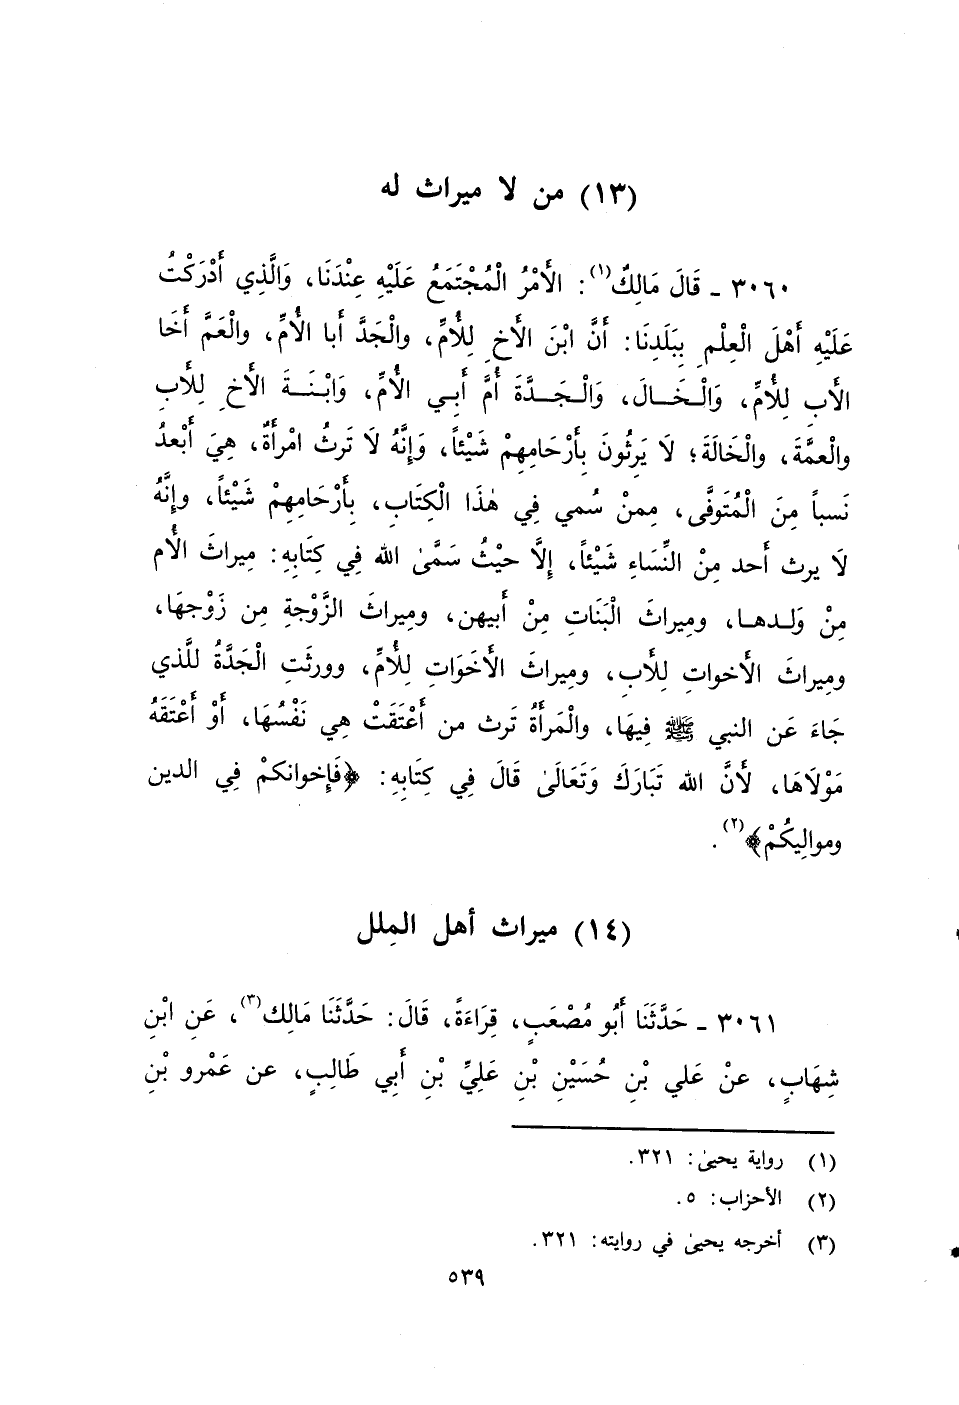 (١٣) من لا ميراث له
٣٠٦٠ ـ قَالَ مَالِكٌ(١): الأَمْرُ الْمُجْتَمَعُ عَلَيْهِ عِنْدَنَا، وَالَّذِي أَدْرَكْتُ
عَلَيْهِ أَهْلَ الْعِلْمِ بِبَلَدِنَا: أَنَّ ابْنَ الأَخِ لِلْأُمِّ، والْجَدَّ أَبا الأُمِّ، والْعَمَّ أَخَا
الأَبِ لِلْأُمِّ، وَالْخَالَ، وَالْجَدَّةَ أُمَّ أَبِي الأُمِّ، وَابْنَةَ الأَخِ لِلْأَبِ
والْعمَّةَ، والْخَالَةَ؛ لَا يَرِثُونَ بِأَرْحَامِهِمْ شَيْئاً، وَإِنَّهُ لَا تَرثُ امْرأَةٌ، هِيَ أَبْعدُ
نَسباً مِنَ الْمُتَوفَّى، مِمنْ سُمي فِي هٰذَا الْكِتَابِ، بِأَرْحَامِهِمْ شَيْئاً، وإِنَّهُ
لَا يرث أَحد مِنْ النِّسَاءِ شَيْئاً، إِلَّا حيْثُ سَمَّىٰ الله فِي كِتَابِهِ: مِيراثَ الأُم
مِنْ وَلدها، ومِيراثَ الْبَنَاتِ مِنْ أَبيهن، ومِيراثَ الزَّوْجةِ مِن زَوْجهَا،
ومِيراثَ الأَخواتِ لِلْأَبِ، ومِيراثَ الأَخَوَاتِ لِلْأُمِّ، وورثَتِ الْجَدَّةُ للَّذي
جَاءَ عَن النبي ﷺ فِيهَا، والْمَرأَةُ تَرث من أَعْتَقَتْ هِي نَفْسُهَا، أَوْ أَعْتَقَهُ
مَوْلَاهَا، لَأنَّ الله تَبَارَكَ وَتَعَالَىٰ قَالَ فِي كِتَابِهِ: ﴿فَإِخوانكمْ فِي الدين
وموالِيكُمْ﴾(٢).
(١٤) ميراث أهل المِلل
٣٠٦١ ـ حَدَّثَنَا أَبُو مُصْعَبٍ، قِرَاءَةً، قَالَ: حَدَّثَنَا مَالِك(٣)، عَنِ ابْنِ
شِهَابٍ، عنْ عَلي بْنِ حُسَيْنِ بْنِ عَلِيِّ بْنِ أَبي طَالِبٍ، عن عَمْرو بْنِ
(١) رواية يحيىٰ: ٣٢١.
(٢) الأحزاب: ٥.
(٣) أخرجه يحيىٰ في روايته: ٣٢١.
٥٣٩